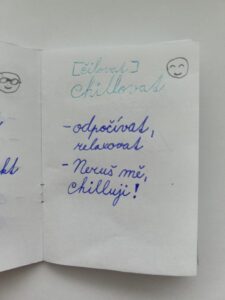 [čilovat]
chillovat
- odpočívat,
relaxovat
- Neruš mě,
chilluji!
kt